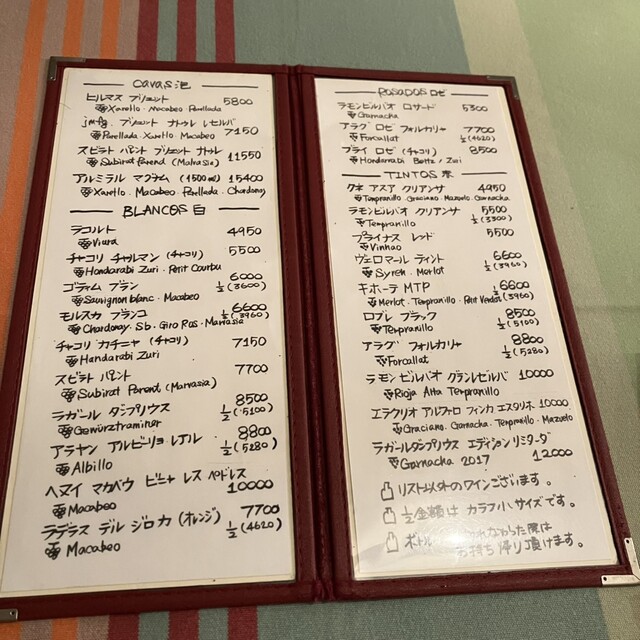 Cavas 泡
ヒルマス ブリュット 5800
Xarello. Macabeo. Parellada
jmfg. ブリュット ナトゥレ レセルバ
Parellada. Xarello. Macabeo 7150
スビラト パレント ブリュット ナトゥレ
Subirat Parend (Malvasia) 11550
アルミラル マグナム (1500ml) 15400
Xarello. Macabeo. Parellada. Chardonay
BLANCOS 白
ラコルト 4950
Viura
チャコリ チョルマン (チャコリ) 5500
Hondarabi Zuri. Petit Courbu
ゴティム ブラン 6000
Sauvignon blanc. Macabeo ½(3600)
モルスカ ブランコ 6600
Chardonay. Sb. Giro Ros. Marrasia ½(3960)
チャコリ カチーナ (チャコリ) 7150
Handarabi Zuri
スビラト パレント 7700
Subirat Parent (Marrasia)
ラガール ダンプリウス 8500
Gewürztraminer ½(5100)
アラヤン アルビーリョ レアル 8800
Albillo ½(5280)
ヘヌイ マカベウ ビニャ レス ペドレス
Macabeo 10000
ラデラス デル ジロカ (オレンジ) 7700
Macabeo ½(4620)
ROSADOS ロゼ
ラモンビルバオ ロサード 5300
Garnacha
アラグ ロゼ フォルカリャ 7700
Forcallat ½(4620)
ブライ ロゼ (チャコリ) 8500
Hondarrabi Beltz / Zuri
TINTOS 赤
クネ アスア クリアンサ 4950
Tempranillo. Graciano. Mazuelo. Garnacha
ラモンビルバオ クリアンサ 5500
Tempranillo ½(3300)
プライナス レッド 5500
Vinhao
ヴェロマール ティント 6600
Syrah. Merlot ½(3960)
キホーテ MTP 6600
Merlot. Tempranillo. Petit Verdot ½(3960)
ロブレ ブラック 8500
Tempranillo ½(5100)
アラグ フォルカリャ 8800
Forcallat ½(5280)
ラモン ビルバオ グランレゼルバ 10000
Rioja Alta Tempranillo
エラクリオ アルファロ フィンカ エスタリホ 10000
Graciano. Garnacha. Tempranillo. Mazuelo
ラガールダンプリウス エディション リミターダ
Garnacha 2017 12000
リスト以外のワインございます。
½金額は カラフハーフサイズです。
ボトル れなかった際は
お持ち帰り頂けます。